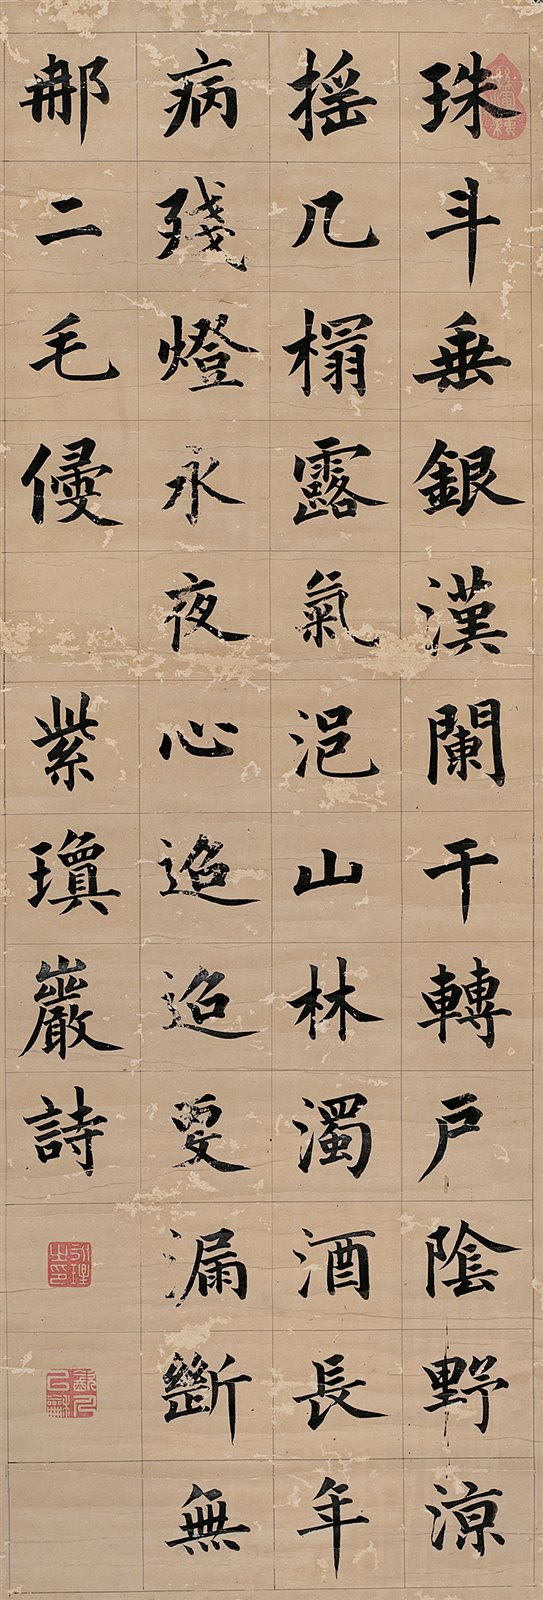 珠斗垂銀漢闌干轉戶陰野涼
搖几榻露氣浥山林濁酒長年
病殘燈永夜心迢迢更漏斷無
郍二毛侵 紫瓊巖詩